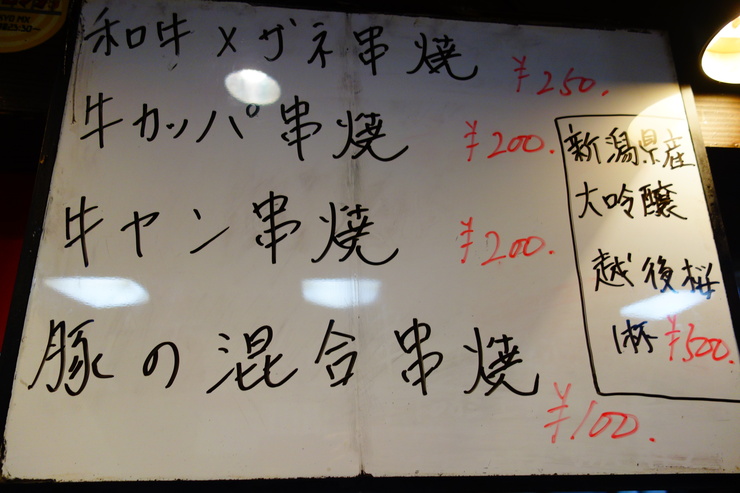 和牛メザネ串焼 ¥250.
牛カッパ串焼 ¥200.
牛ヤン串焼 ¥200.
豚の混合串焼 ¥100.
新潟県産
大吟醸
越後桜
1杯 ¥500.